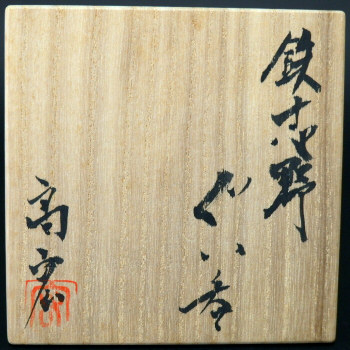 鉄志野
ぐい呑
高